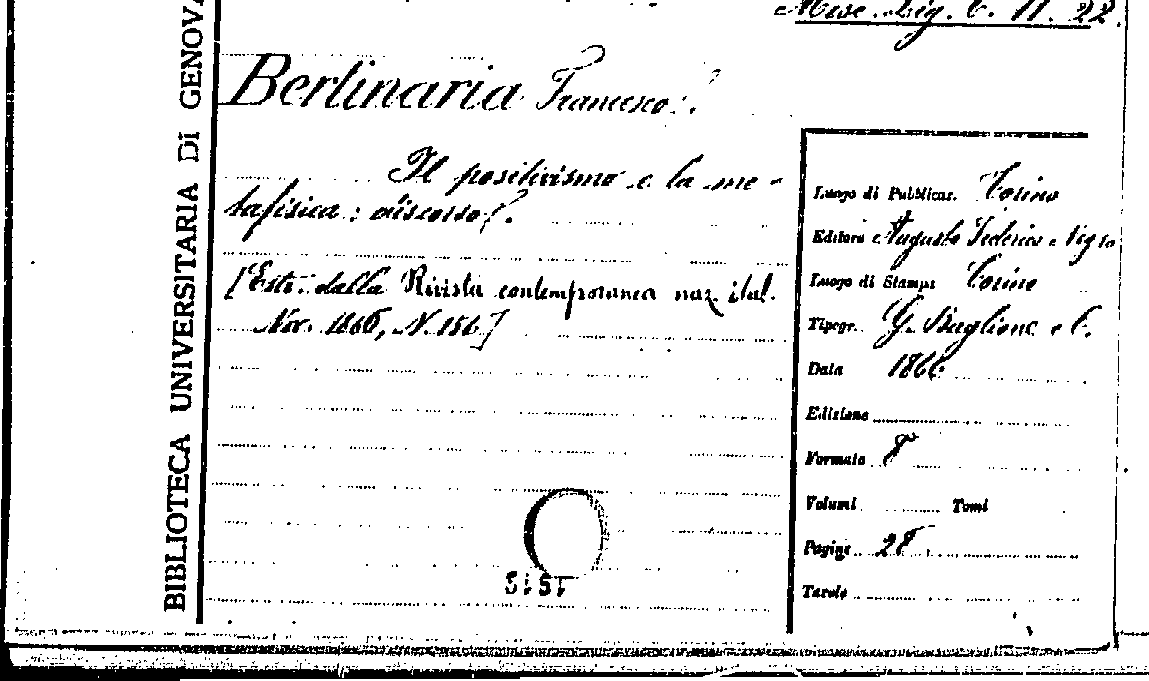 Misc. Lig. C. 11. 22.
BIBLIOTECA UNIVERSITARIA Di GENOVA
Bertinaria Francesco.
Il positivismo e la me-
tafisica: discorso.
[Estr. dalla Rivista contemporanea naz. ital.
Nov. 1866, N. 156]
Luogo di Pubblicaz. Torino
Editore Augusto Federico Negro
Luogo di Stampa Torino
Tipogr. G. Baglione e C.
Data 1866
Edizione
Formato 8°
Volumi Tomi
Pagine 28
Tavole